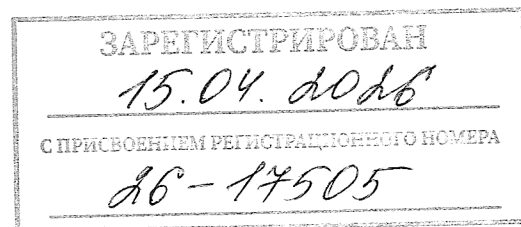 ЗАРЕГИСТРИРОВАН
15.04.2026
С ПРИСВОЕНИЕМ РЕГИСТРАЦИОННОГО НОМЕРА
26-17505